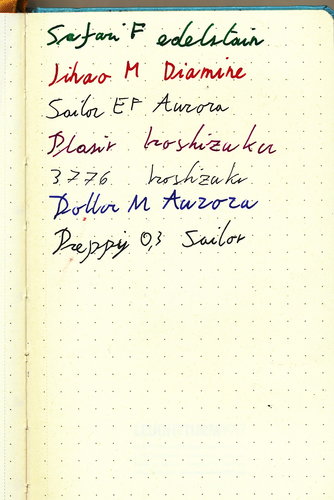 Safari F edelstein
Jihao M Diamine
Sailor EF Aurora
Plasir koshizaku
3776 koshizaku
Dollar M Aurora
Preppy 0,3 Sailor